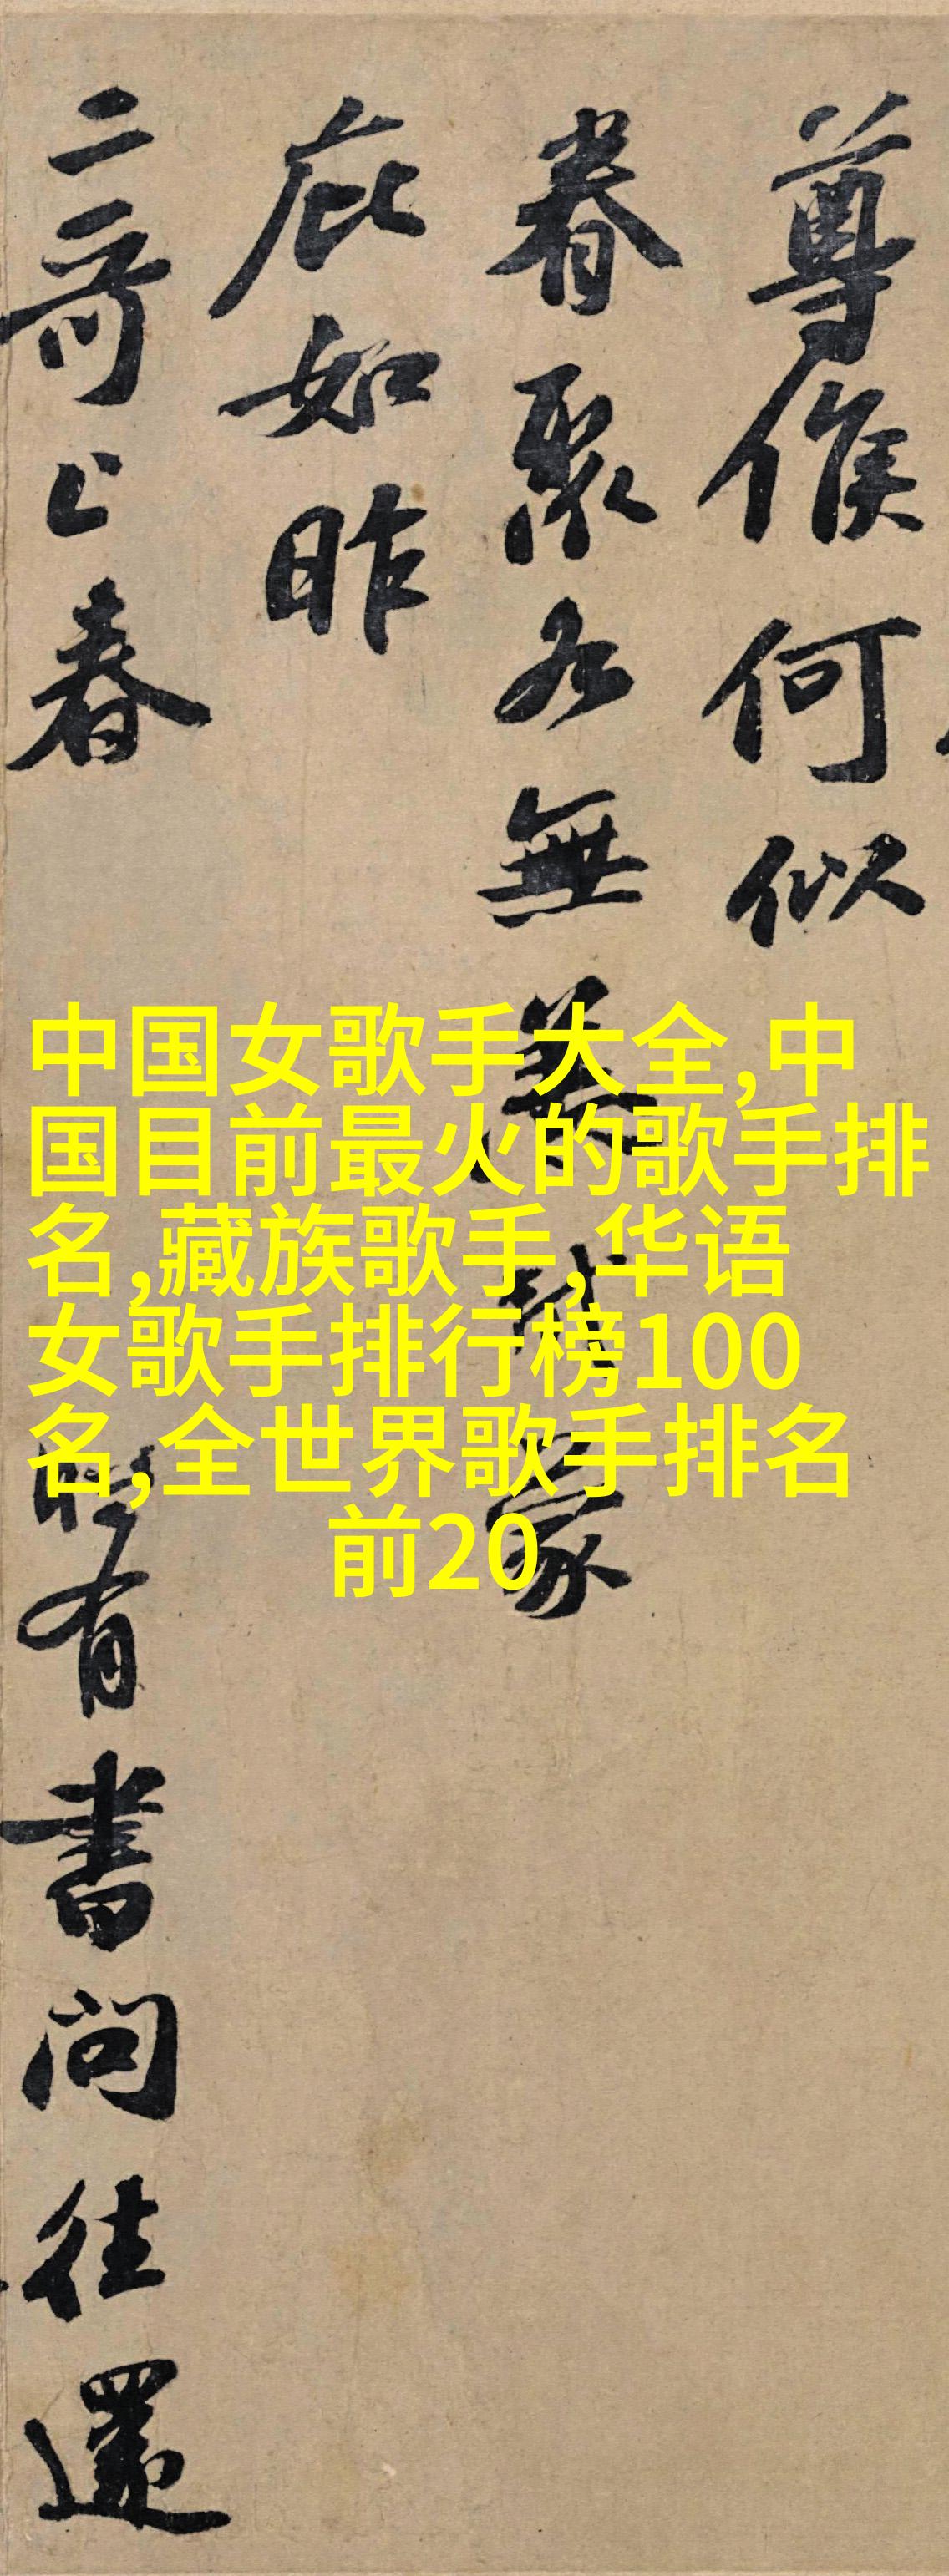 尊候何似
眷聚各無恙戟蒙
庇如昨
二哥上春
時有書問往還
中国女歌手大全,中
国目前最火的歌手排
名,藏族歌手,华语
女歌手排行榜100
名,全世界歌手排名
前20